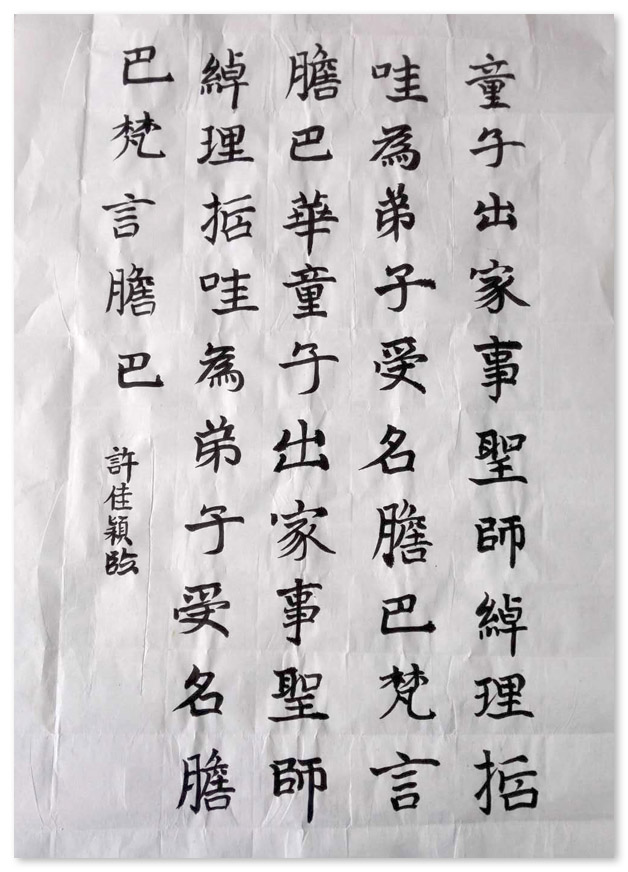 童子出家事聖師綽理括
哇為弟子受名膽巴梵言
膽巴華童子出家事聖師
綽理括哇為弟子受名膽
巴梵言膽巴
許佳穎臨